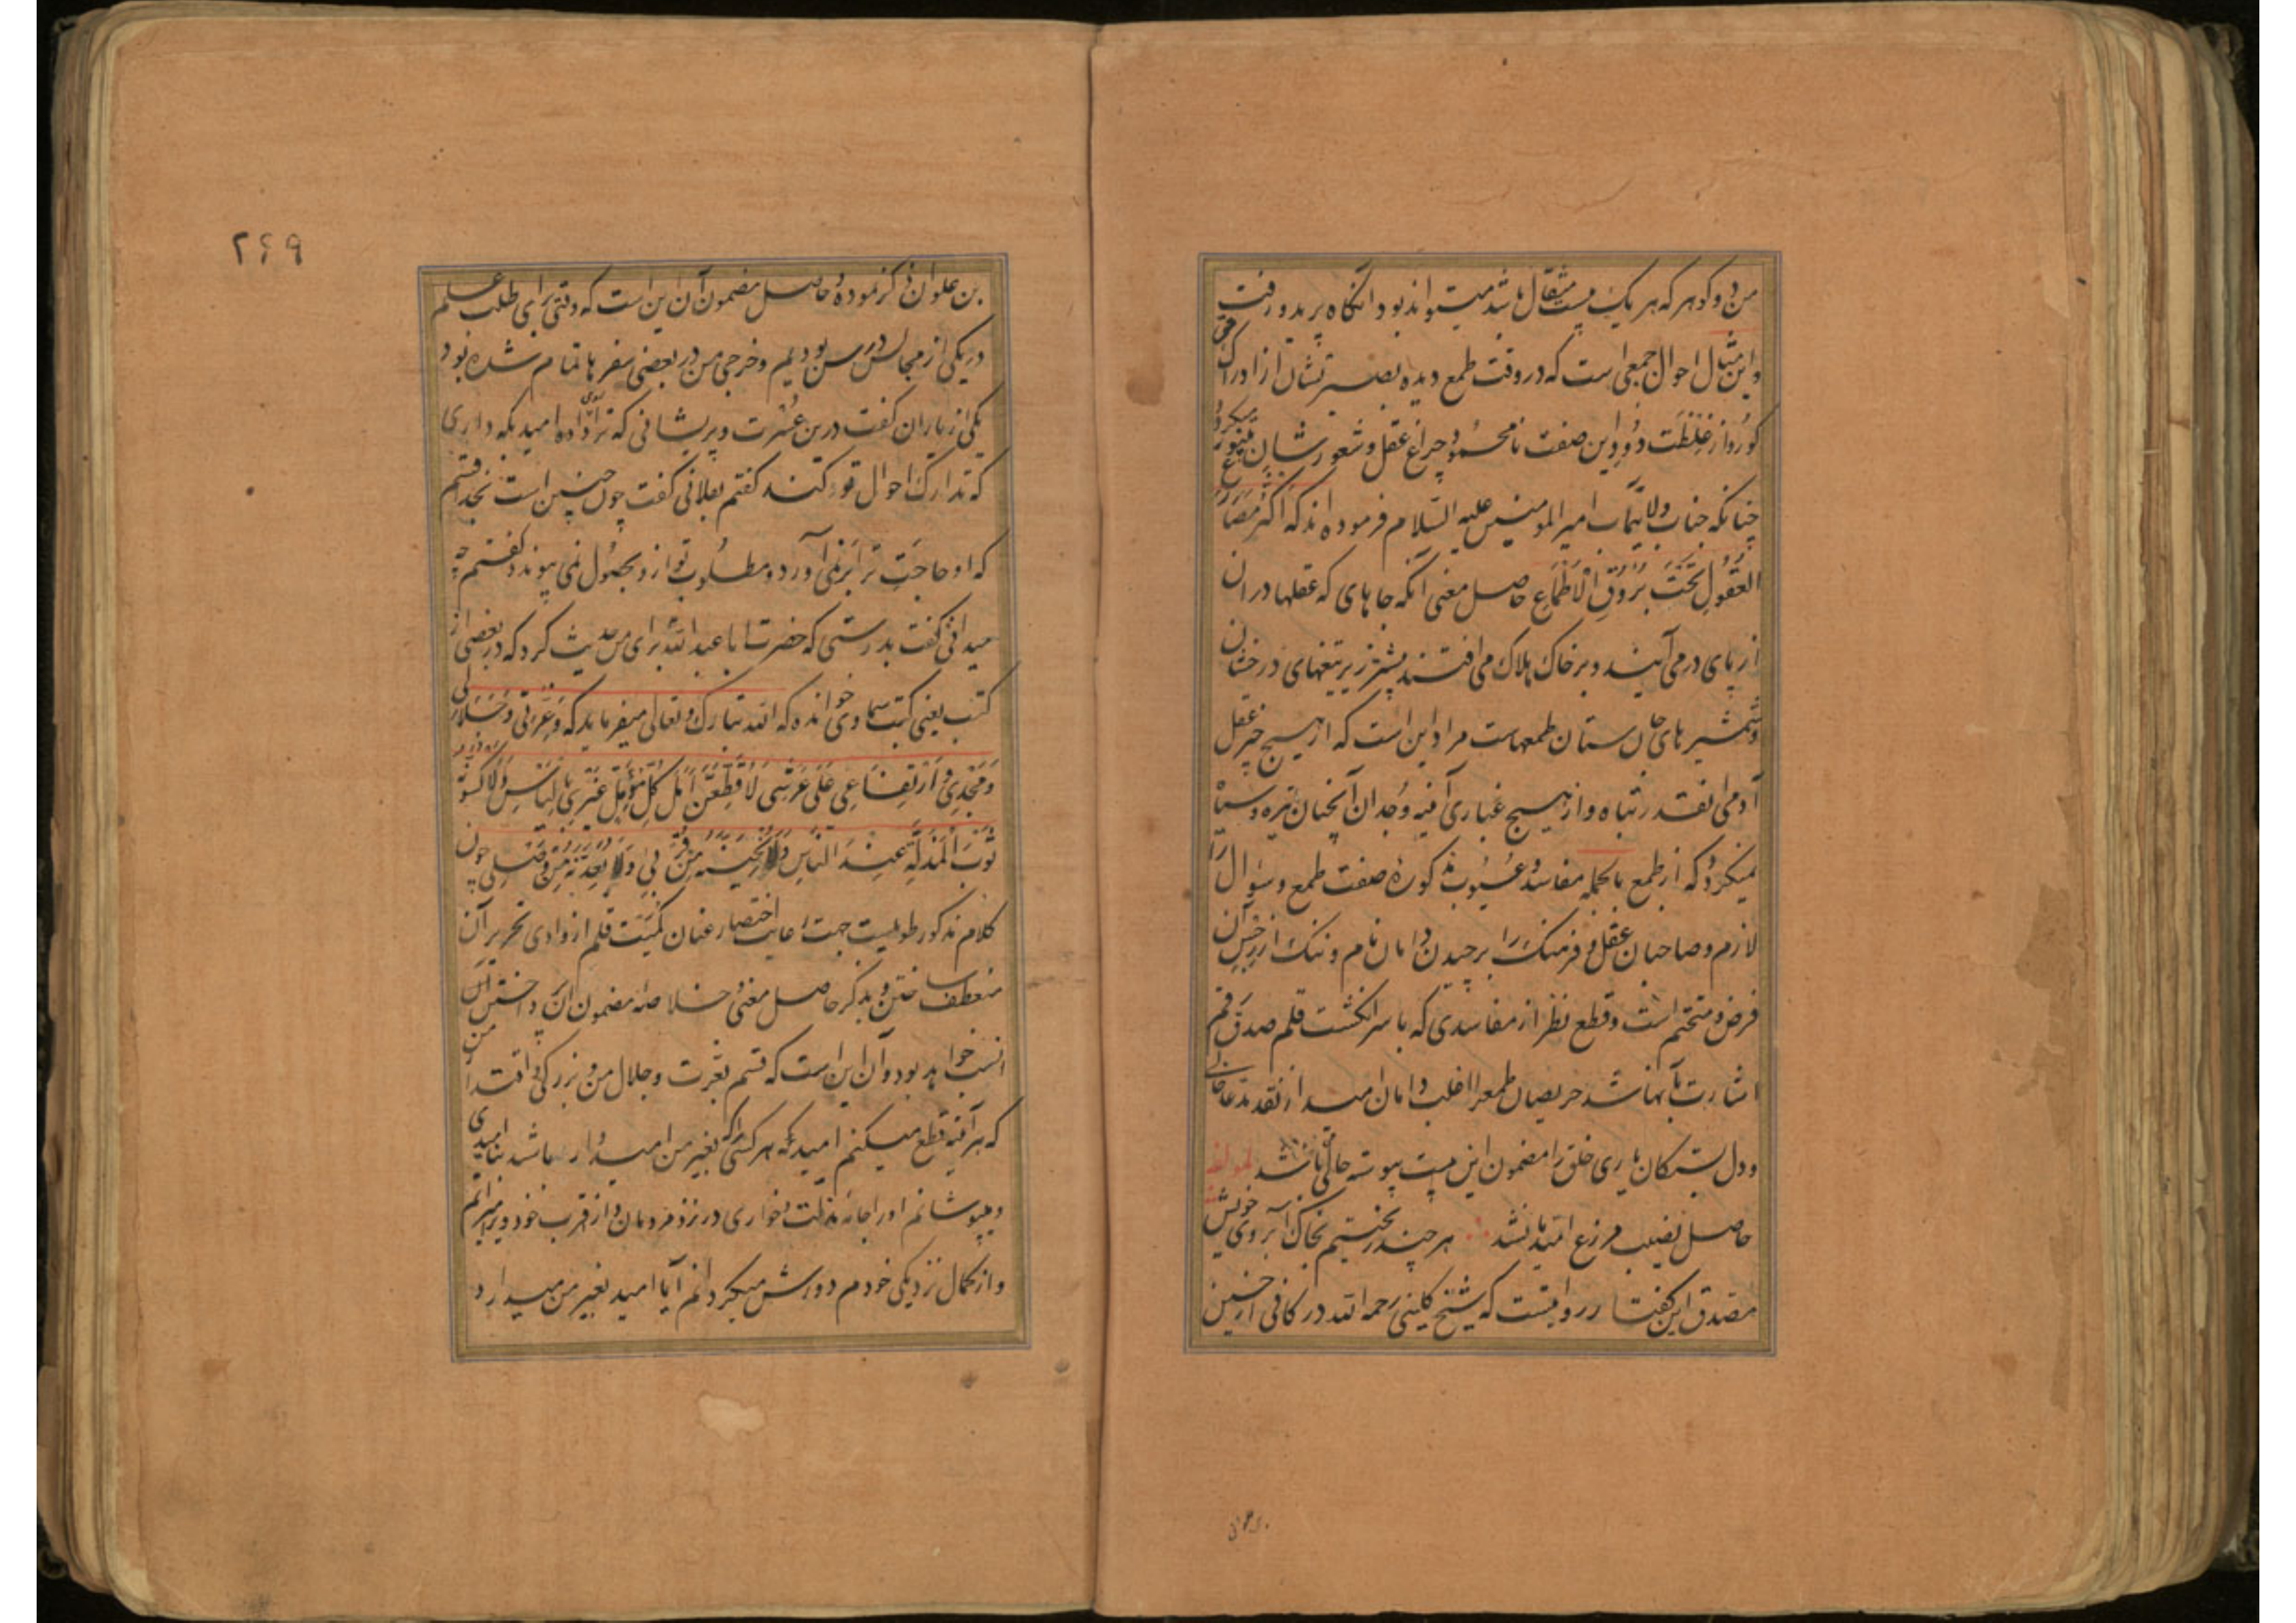 من دو گوهر که هر یک بیست مثقال باشد میتواند بود آنگاه پرید و رفت
و این مثال احوال جمعی است که در وقت طمع دیده بصیرتشان از ادراک حق
کور و از غلظت دود این صفت نامحمود چراغ عقل و شعورشان بینور میگردد
چنانکه جناب ولایتمآب امیر المومنین علیه السلام فرموده اند که اکثر مصارع
العقول تحت بروق الاطماع حاصل معنی آنکه جاهای که عقلها در آن
از پای درمی آیند و بر خاک هلاک می افتند بیشتر زیر تیغهای درخشان
و شمشیرهای جان ستان طمعهاست مراد این است که از هیچ چیز عقل
آدمی آنقدر تباه و از هیچ غباری آینه وجدان آنچنان تیره و سیاه
نمیگردد که از طمع بالجمله مفاسد و عیوب مذکوره صفت طمع و سوال را
لازم و صاحبان عقل و فرهنگ را برچیدن دامان نام و ننگ از خس آن
فرض و متحتم است و قطع نظر از مفاسدی که با سر انگشت قلم صدق رقم
اشارت بآنها شد حریصان طمع را اغلب دامان امید از نقد مدعا خالی
و دل بستگان یاری خلق را مضمون این بیت پیوسته حالی باشد لمولفه
حاصل نصیب مزرع امید ما نشد هر چند ریختیم بخاک آبروی خویش
مصدق این گفتار روایتست که شیخ کلینی رحمه الله در کافی از حسین
۲۶۹
بن علوان ذکر نموده و حاصل مضمون آن این است که وقتی برای طلب علم
در یکی از مجالس درس بودیم و خرجی من در بعضی سفرها تمام شده بود
یکی از یاران گفت درین عسرت و پریشانی که ترا رو داده امید بکه داری
که تدارک احوال تو کند گفتم بفلانی گفت چون چنین است بخدا قسم
که او حاجت ترا برنمی آورد و مطلوب تو ازو بحصول نمی پیوندد گفتم چه
میدانی گفت بدرستی که حضرت ابا عبد الله برای من حدیث کرد که در بعضی از
کتب یعنی کتب سماوی خوانده که الله تبارک و تعالی میفرماید که وعزتی وجلالی
ومجدی وارتفاعی علی عرشی لاقطعن امل کل مؤمل غیری بالیاس ولاکسونه
ثوب المذلة عند الناس ولانحینه من قربی ولابعدنه من وصلی چون
کلام مذکور طویلست جهت رعایت اختصار عنان کمیت قلم از وادی تحریر آن
منعطف ساختن و بذکر حاصل معنی و خلاصه مضمون آن پرداختن
انسب خواهد بود و آن این است که قسم بعزت و جلال من و بزرگی و اقتدار من
که هر آینه قطع میکنم امید هر کس را که بغیر من امیدوار باشد بناامیدی
و میپوشانم او را جامه مذلت و خواری در نزد مردمان و از قرب خود میرانم
و از کمال نزدیکی خودم دورش میگردانم آیا امید بغیر من میدارد